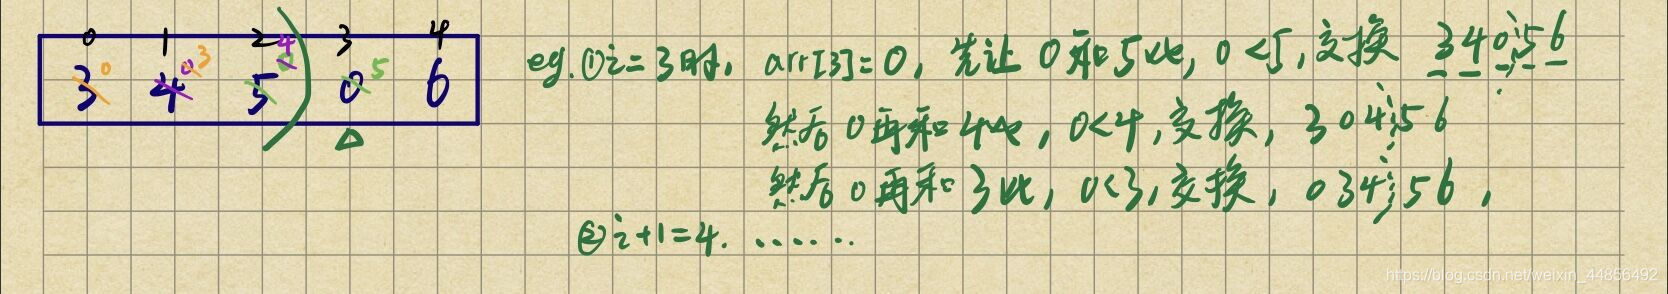 0 1 2 3 4
3 4 5 0 6
0 3 0 4 0 5
eg.①i=3时，arr[3]=0，先让0和5比，0<5，交换 3 4 0 5 6
然后0再和4比，0<4，交换，3 0 4 5 6
然后0再和3比，0<3，交换，0 3 4 5 6，
②i+1=4. ......
https://blog.csdn.net/weixin_44856492